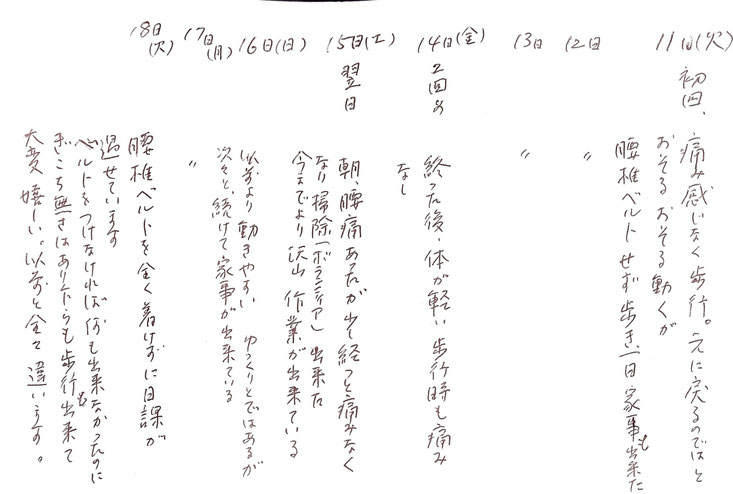 11日(火)
初回、痛み感じなく歩行。元に戻るのではと
おそるおそる動くが
腰椎ベルトせず歩き、一日家事も出来た
12日
〃
13日
〃
14日(金)
2回め
終った後、体が軽い歩行時も痛み
なし
15日(土)
翌日
朝、腰痛あたが少し経つと痛みなく
なり掃除(ボランティア)出来た
今までより沢山作業が出来ている
16日(日)
以前より動きやすい ゆっくりとではあるが
次々と、続けて家事が出来ている
17日(月)
〃
18日(火)
腰椎ベルトを全く着けずに日課が
過せています
ベルトをつけなければ何も出来なかったのに
ぎこち無さはありながらも歩行も出来て
大変嬉しい、以前と全て違います。